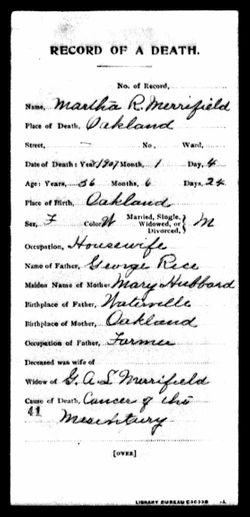 RECORD OF A DEATH.
No. of Record,
Name, Martha R. Merrifield
Place of Death, Oakland
Street, — No, Ward,
Date of Death: Year, 1907 Month, 1 Day, 4
Age: Years, 56 Months, 6 Days, 24
Place of Birth, Oakland
Sex, F Color W Married, Single, Widowed, or Divorced, M
Occupation, Housewife
Name of Father, George Rice
Maiden Name of Mother Mary Hubbard
Birthplace of Father, Waterville
Birthplace of Mother, Oakland
Occupation of Father, Farmer
Deceased was wife of
Widow of G. A. L Merrifield
Cause of Death, Cancer of the
41
[OVER]
LIBRARY BUREAU